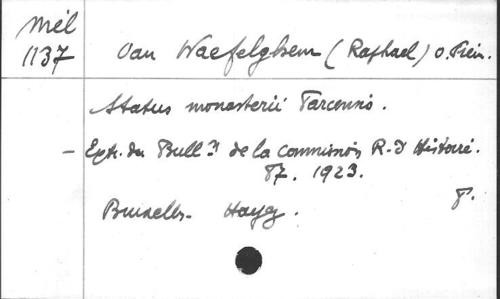 Mél
1137
Van Waefelghem (Raphael) o. Prém.
Status monasterii Parcensis.
- Extr. du Bull. de la commission R. d'Histoire.
87. 1923.
Bruxelles. Hayez. 8°.